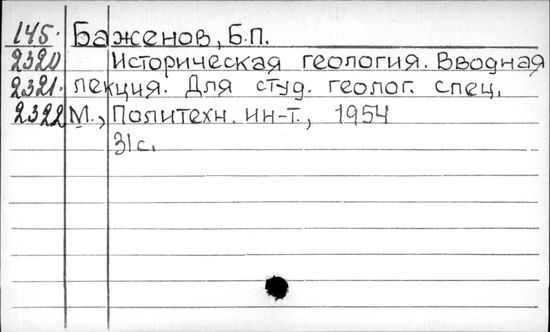 145. Баженов, Б.П.
2320 Историческая геология. Вводная
2321. лекция. Для студ. геолог. спец.
2322 М., Политехн. ин-т., 1954
31с.